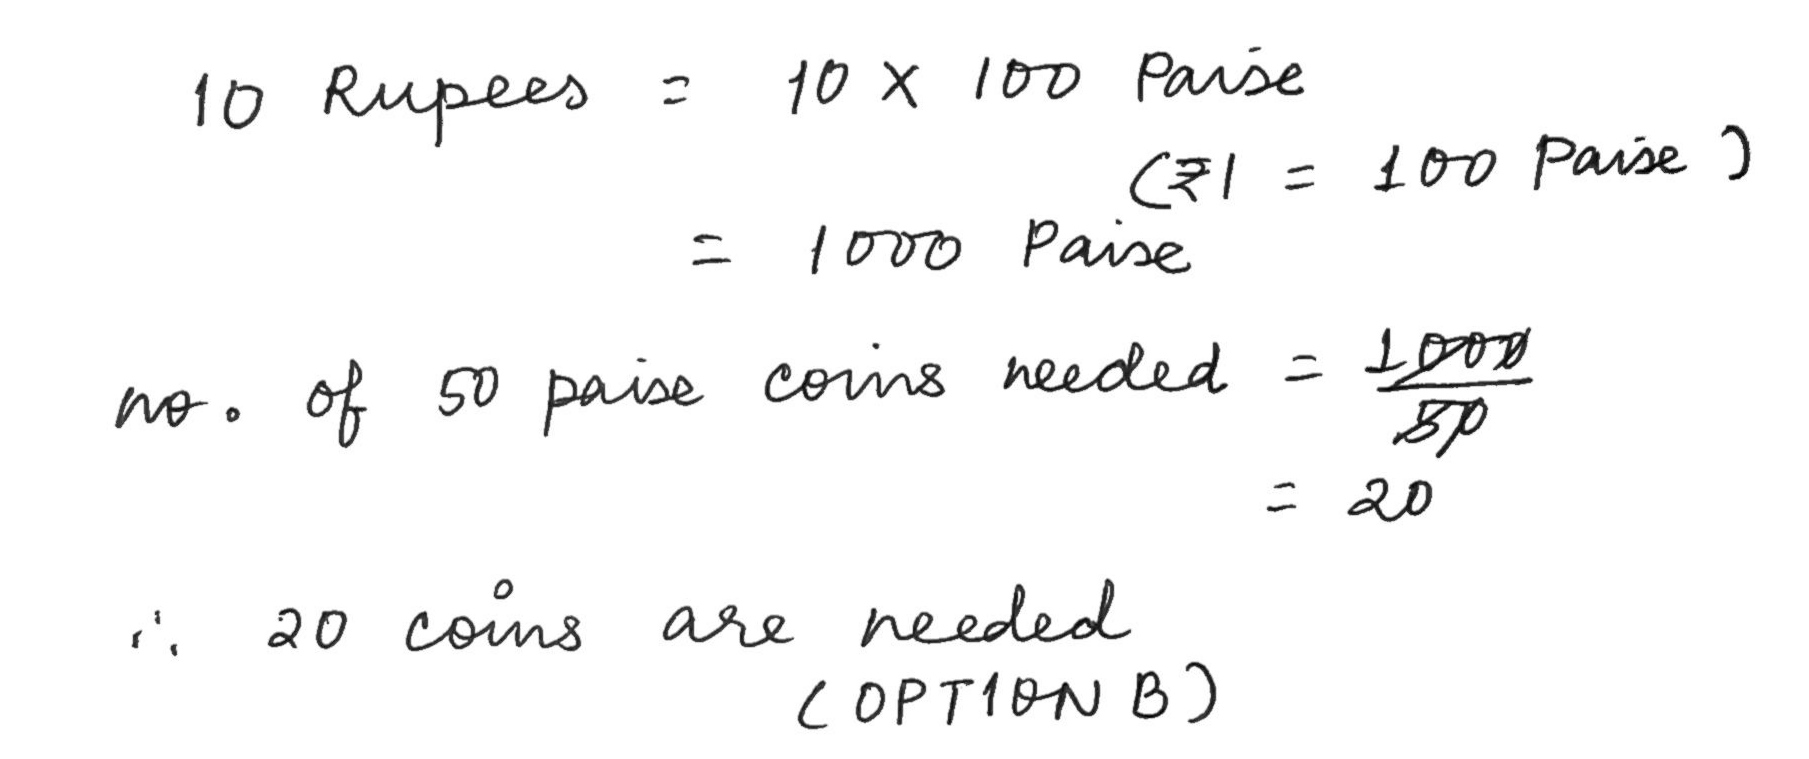 10 Rupees = 10 × 100 Paise
(₹1 = 100 Paise)
= 1000 Paise
no. of 50 paise coins needed = 1000/50
= 20
∴ 20 coins are needed
(OPTION B)